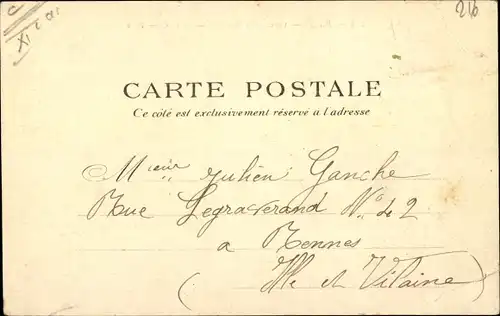 216
CARTE POSTALE
Ce côté est exclusivement réservé à l'adresse
Mieur Julien Ganche
Rue Legraverand No 42
a Rennes
(Ille et Vilaine)